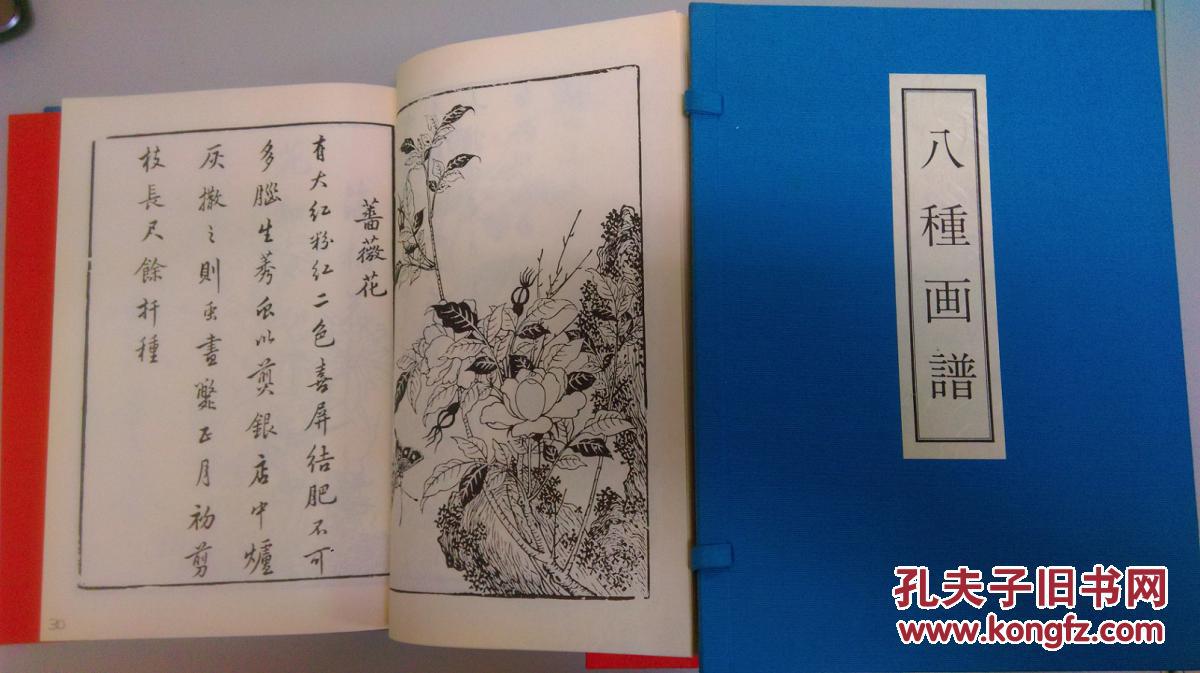 薔薇花
有大紅粉紅二色喜屏結肥不可
多腦生莠虫以煎銀店中爐
灰撒之則虫盡斃正月初剪
枝長尺餘扦種
30
八種画譜
孔夫子旧书网
www.kongfz.com